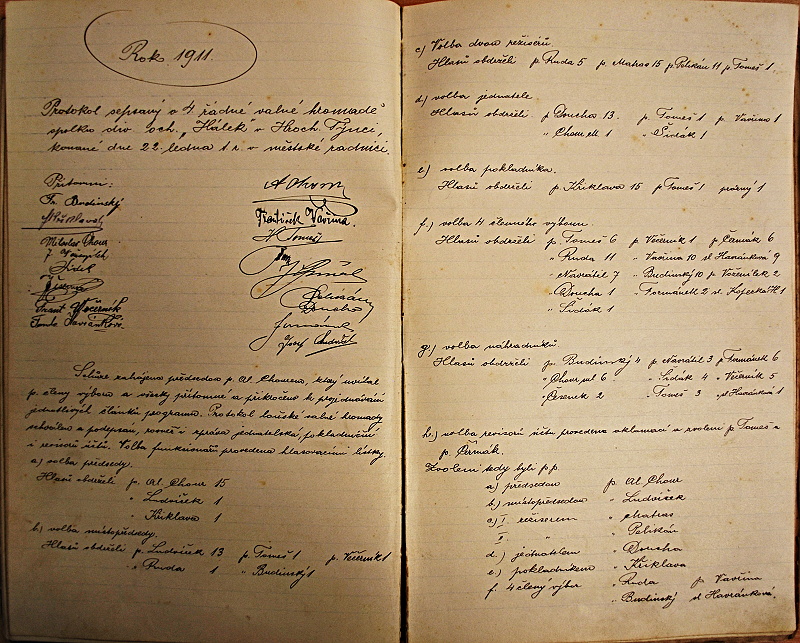 Rok 1911.
Protokol sepsaný o 4 řádné valné hromadě
spolku div. och. „Hálek" v Hroch. Týnci,
konané dne 22. ledna t. r. v městské radnici.
Přítomni:
Fr. Budínský
Miloslav Chour
František Vavřina.
K Tomeš
Pelikán
Doucha
Frant. Večerník
Josef
Schůze zahájena předsedou p. Al. Chourem, který uvítal
p. členy výboru a všecky přítomné a přikročeno k projednávání
jednotlivých článků programu. Protokol loňské valné hromady
schválen a podepsán, rovněž i zpráva jednatelská, pokladniční
i revisorů účtů. Volba funkcionářů provedena hlasovacími lístky.
a) volba předsedy.
Hlasů obdrželi p. Al. Chour 15
" Ludvíček 1
" Křiklava 1
b) volba místopředsedy.
Hlasů obdrželi p. Ludvíček 13 p. Tomeš 1 p. Večerník 1
" Ruda 1 " Budínský 1
c) Volba dvou režisérů.
Hlasů obdrželi p. Ruda 5 p. Matras 15 p. Pelikán 11 p Tomeš 1
d) volba jednatele
Hlasů obdrželi p. Doucha 13. p. Tomeš 1 p. Vavřina 1
" Chour ml 1 " Šidák 1
e) volba pokladníka.
Hlasů obdrželi p. Křiklava 15 p. Tomeš 1 prázný 1
f.) volba 4 členného výboru.
Hlasů obdrželi p. Tomeš 6 p. Večerník 1 p. Čermák 6
" Ruda 11 " Vavřina 10 sl Havránkova 9
" Navrátil 7 " Budínský 10 p. Večeřílek 2
" Doucha 1 " Formánek 2 sl. Kopecká 1
" Šidák 1
g.) volba náhradníků
Hlasů obdrželi p. Budínský 4 p Navrátil 3 p Formánek 6
" Chour ml 6 " Šidák 4 " Večerník 5
" Česenek 2 " Tomeš 3 sl Havránková 1
h.) volba revisorů účtu provedena aklamací a zvoleni p Tomeš a
p. Čermák.
Zvoleni tedy byli p p
a) předsedou p. Al. Chour
b.) místopředsedou " Ludvíček
c) I. režiserem " Matras
II. " " Pelikán
d.) jednatelem " Doucha
e.) pokladníkem " Křiklava
f. 4 člený výbor " Ruda p. Vavřina
" Budínský sl Havránková.